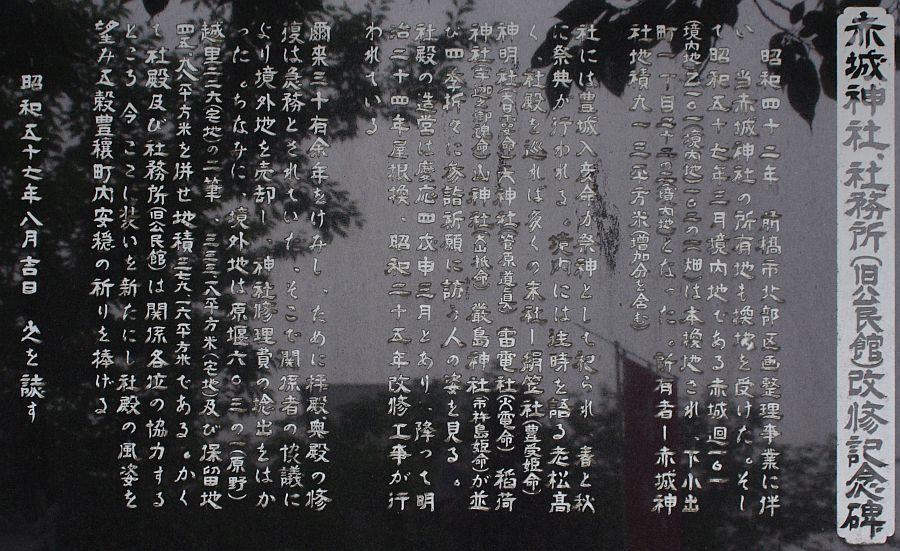 赤城神社、社務所(旧公民館)改修記念碑
昭和四十二年 前橋市北部区画整理事業に伴
い 当赤城神社の所有地も換地を受けた。そし
て昭和五十七年三月境内地である赤城廻二〇一
(境内地)二〇二(境内地)二〇三の二(畑)は本換地され、下小出
町一丁目三十二(境内地)となった。所有者ー赤城神
社地積九一三平方米(増加分を含む)
社には豊城入彦命が祭神として祀られ、春と秋
に祭典が行われる。境内には往時を語る老松高
く 社殿を巡れば多くの末社ー絹笠社(豊受姫命)
神明社(大日霊命)天神社(菅原道真) 雷電社(火雷命) 稲荷
神社(宇迦之御魂命)山神社(大山祇命) 厳島神社(市杵島姫命)が並
び四季折々に参詣祈願に訪う人の姿を見る。
社殿の造営は慶応四戊申三月とあり、降って明
治二十四年屋根換、昭和二十五年改修工事が行
われている
爾来三十有余年をけみし、ために拝殿奥殿の修
復は急務とされていた。そこで関係者の協議に
より境外地を売却し、神社修理費の捻出をはか
った。ちなみに、境外地は原堰六〇三の一(原野)
越里二二六(宅地)の二筆、三三三、八平方米(宅地)及び保留地
四五、九八平方米を併せ地積三七九、一六平方米である。かく
て社殿及び社務所(旧公民館)は関係各位の協力する
ところ 今ここに装いを新たにし社殿の風姿を
望み五穀豊穣町内安穏の祈りを捧げる
昭和五十七年八月吉日 之を誌す